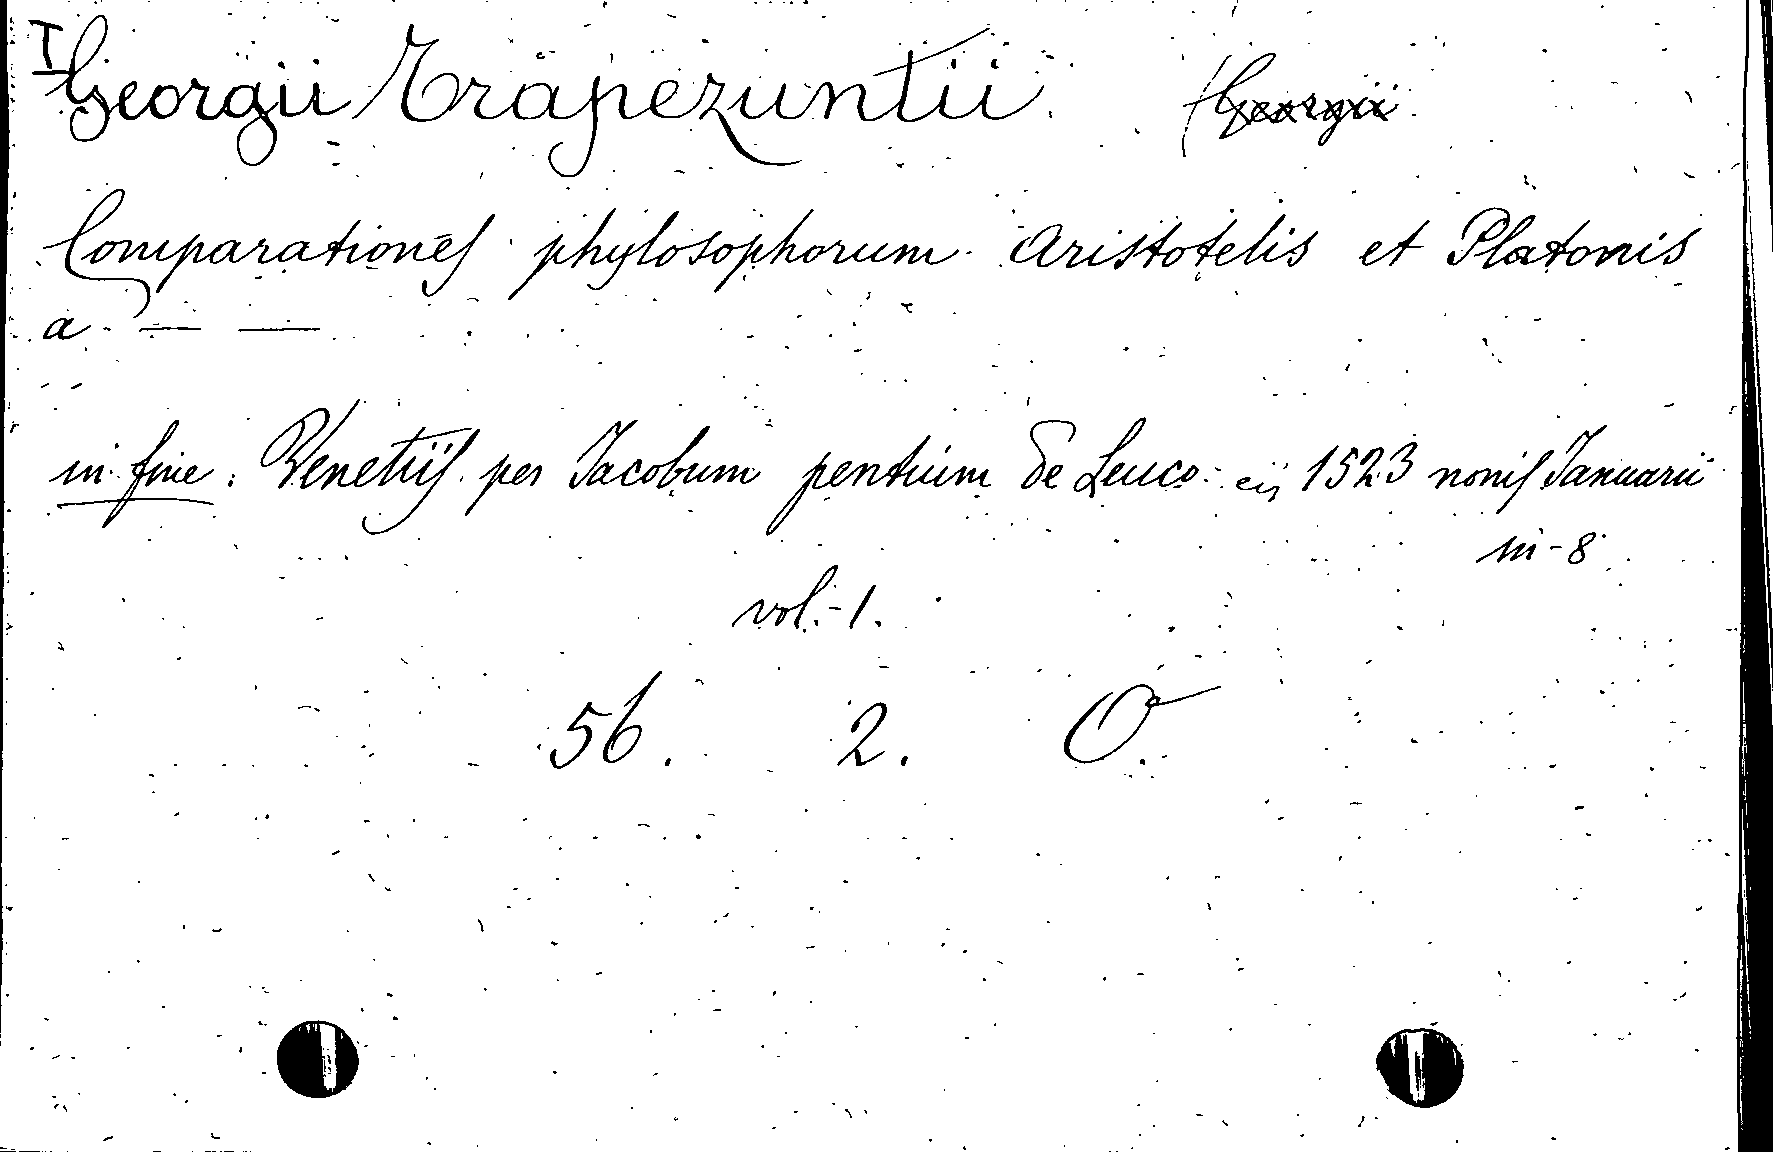 I Georgii Trapezuntii (Georgii
Comparationes phylosophorum Aristotelis et Platonis
a — —
in fine: Venetiis per Jacobum pentium de Leuco 1523 nonis Januarii
in-8
vol.-1.
56. 2. O.